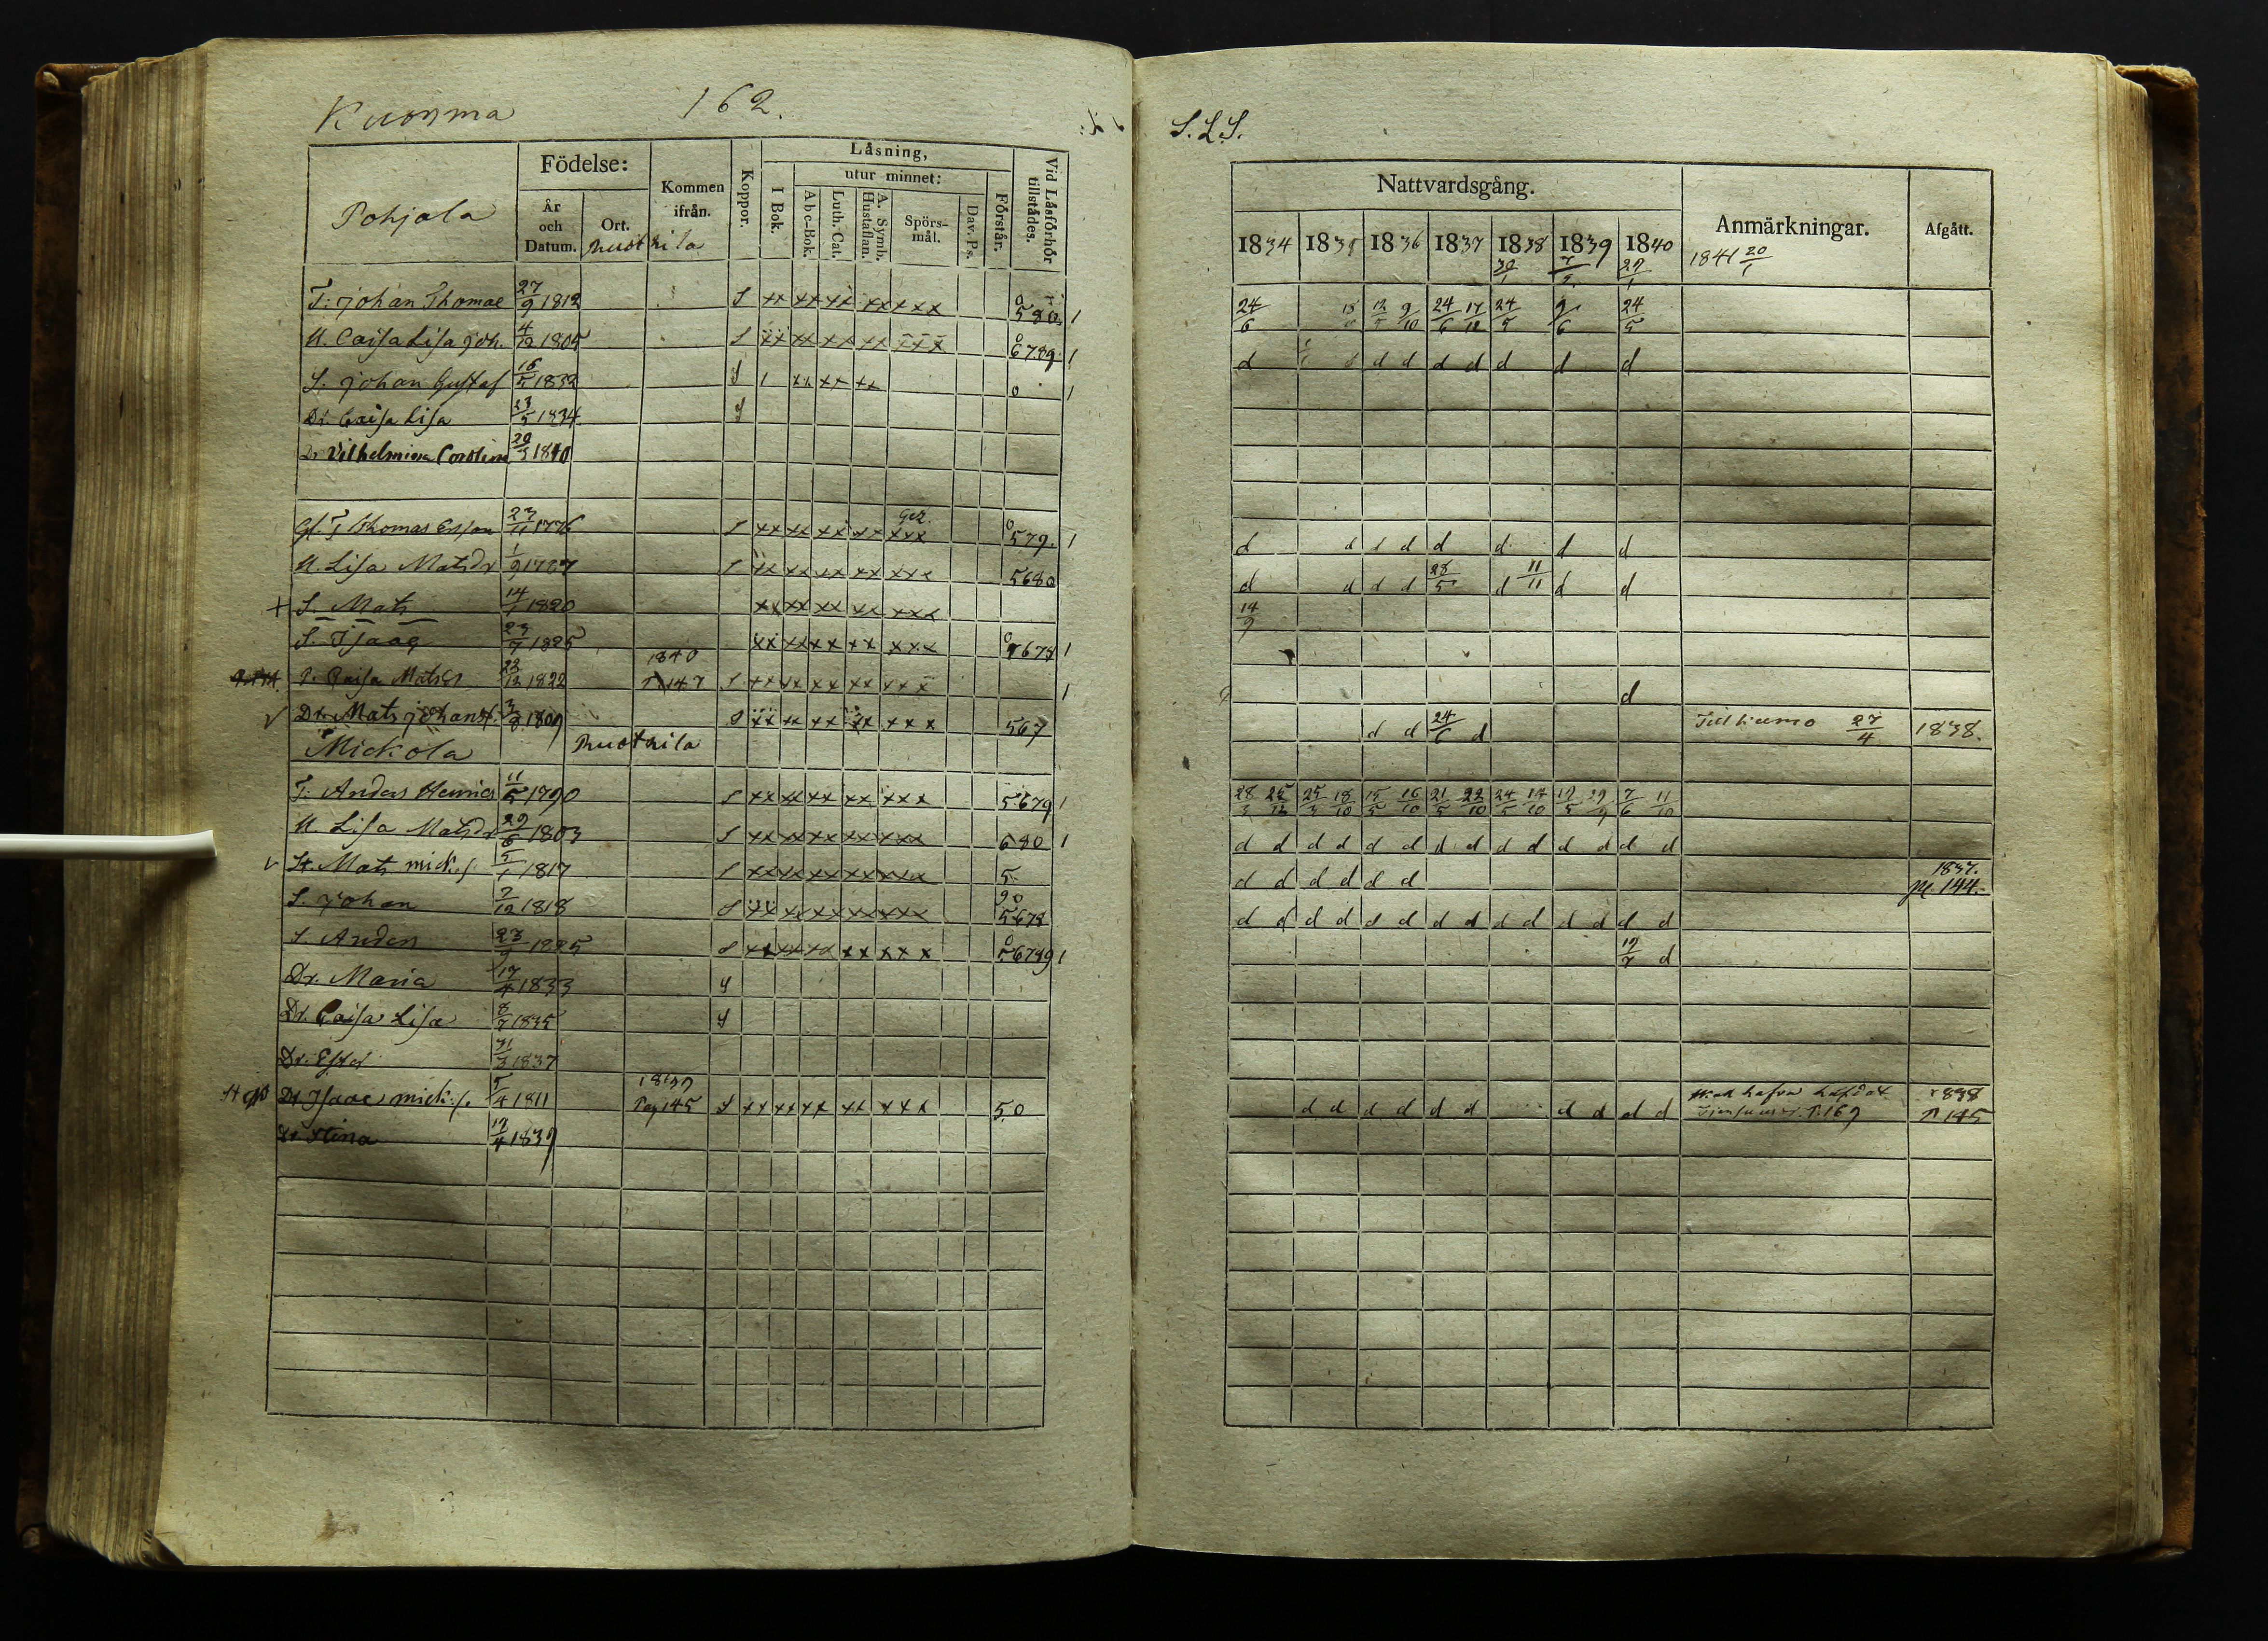 Kuonma 162.
Pohjola
Födelse:
År och Datum.
Ort.
Kommen ifrån.
Koppor.
Läsning,
I Bok.
utur minnet:
Abc-Bok.
Luth. Cat.
A. Symb. Hustaflan.
Spörs-mål.
Dav. Ps.
Förstår.
Vid Läsförhör tillstädes.
T: Johan Thomae 27/9 1812 S xx xx xx xx xxx 580 1
H. Caisa Lisa Joh. 4/12 1805 S xx xx xx xx xxx 6789 1
S. Johan Gustaf 16/5 1832 S 1 xx xx xx 0 1
Dr. Caisa Lisa 23/5 1834 S
Dr Vilhelmina Carolina 20/3 1840
Gl. T Thomas Ersson 23/11 1776 S xx xx xx xx xxx 579 1
H. Lisa Matsdr 1/9 1787 S xx xx xx xx xxx 5680
+ S. Mats 14/1 1820 xx xx xx xx xxx
S. Isaac 23/7 1825 xx xx xx xx xxx 7678 1
P. Caisa Matsdr 23/12 1822 1840 P. 147 S xx xx xx xx xxx 1
Dr. Mats Johans. 3/8 1809 S xx xx xx xx xxx 567
Mickola
T: Anders Henrics 11/5 1790 S xx xx xx xx xxx 5679 1
H. Lisa Matsdr 29/6 1803 S xx xx xx xx xxx 680 1
St. Mats Mick.s. 5/1 1817 S xx xx xx xx xxx 5
S. Johan 7/12 1818 S xx xx xx xx xxx 90 5678
S. Anders 23/9 1825 S xx xx xx xx xxx 56789 1
Dr. Maria 17/4 1833 S
Dr. Caisa Lisa 8/7 1835 S
Dr. Ester 31/3 1837
Dr Isaac Mick.s. 5/4 1811 1839 Pag 145 S xx xx xx xx xxx 5.0
Dr Stina 17/4 1839
S. L. S.
Nattvardsgång.
Anmärkningar.
Afgått.
1834 1835 1836 1837 1838 1839 1840
1841 20/1
24/6 12/5 9/10 24/6 17/12 24/5 9/6 24/5
d d d d d d d d
d d d d d d d d
d d d d 28/5 d 11/11 d d
14/9
d
d d 24/6 d 27/4 1838.
28/3 25/12 25/3 18/10 15/5 16/10 21/5 22/10 24/5 14/10 19/5 29/9 7/6 11/10
d d d d d d d d d d d d d d
d d d d d d 1837. P. 144.
d d d d d d d d d d d d d d
19/7 d
d d d d d d d d d d P. 169 1838 P. 145